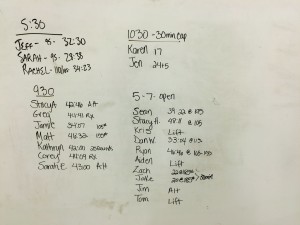 5:30
JEFF - 95 - 32:30
SARAH - 95 - 28:38
RACHEL - 34:23
930
Stacy A 42:46 Alt
Greg 41:41 RX
Jamie 34:07 105#
Matt 48:33
Kathryn 42:00
Corey 41:09 RX
Sarah E. 43:00 Alt
1030 - 30 min cap
Karen 17
Jen 24+5
5-7 - open
Sean 39:22 @ 105
Stacy H. @ 105
Kris Lift
Dan W. 33:04 @
Ryan 46:46 @
Aiden Lift
Zach
Jake
Jim Alt
Tom Lift